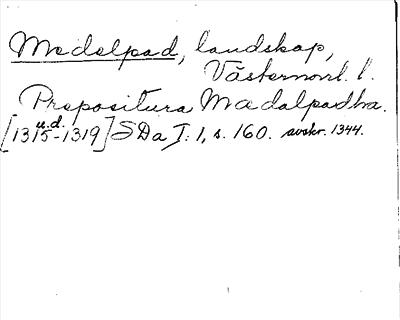 Medelpad, landskap,
Västernorrl. l.
Prepositura Mædalpadha.
u.d.
[1315-1319] SDa I: 1, s. 160. avskr. 1344.